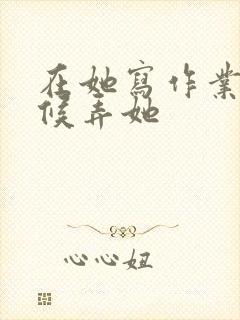 在她寫作業
候弄她
心心妞